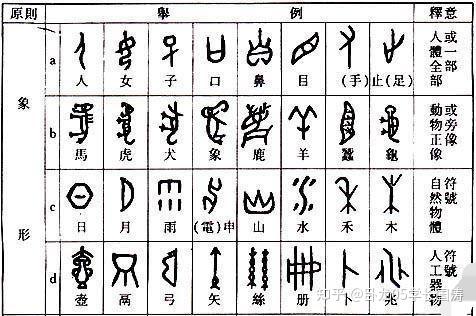 原則 舉 例 釋意
象形
a 人 女 子 口 鼻 目 (手) 止(足) 人體全部或一部
b 馬 虎 犬 象 鹿 羊 蠶 龜 動物正像或旁像
c 日 月 雨 (電)申 山 水 禾 木 自然物體符號
d 壺 鬲 弓 矢 絲 册 卜 兆 人工器物符號
知乎